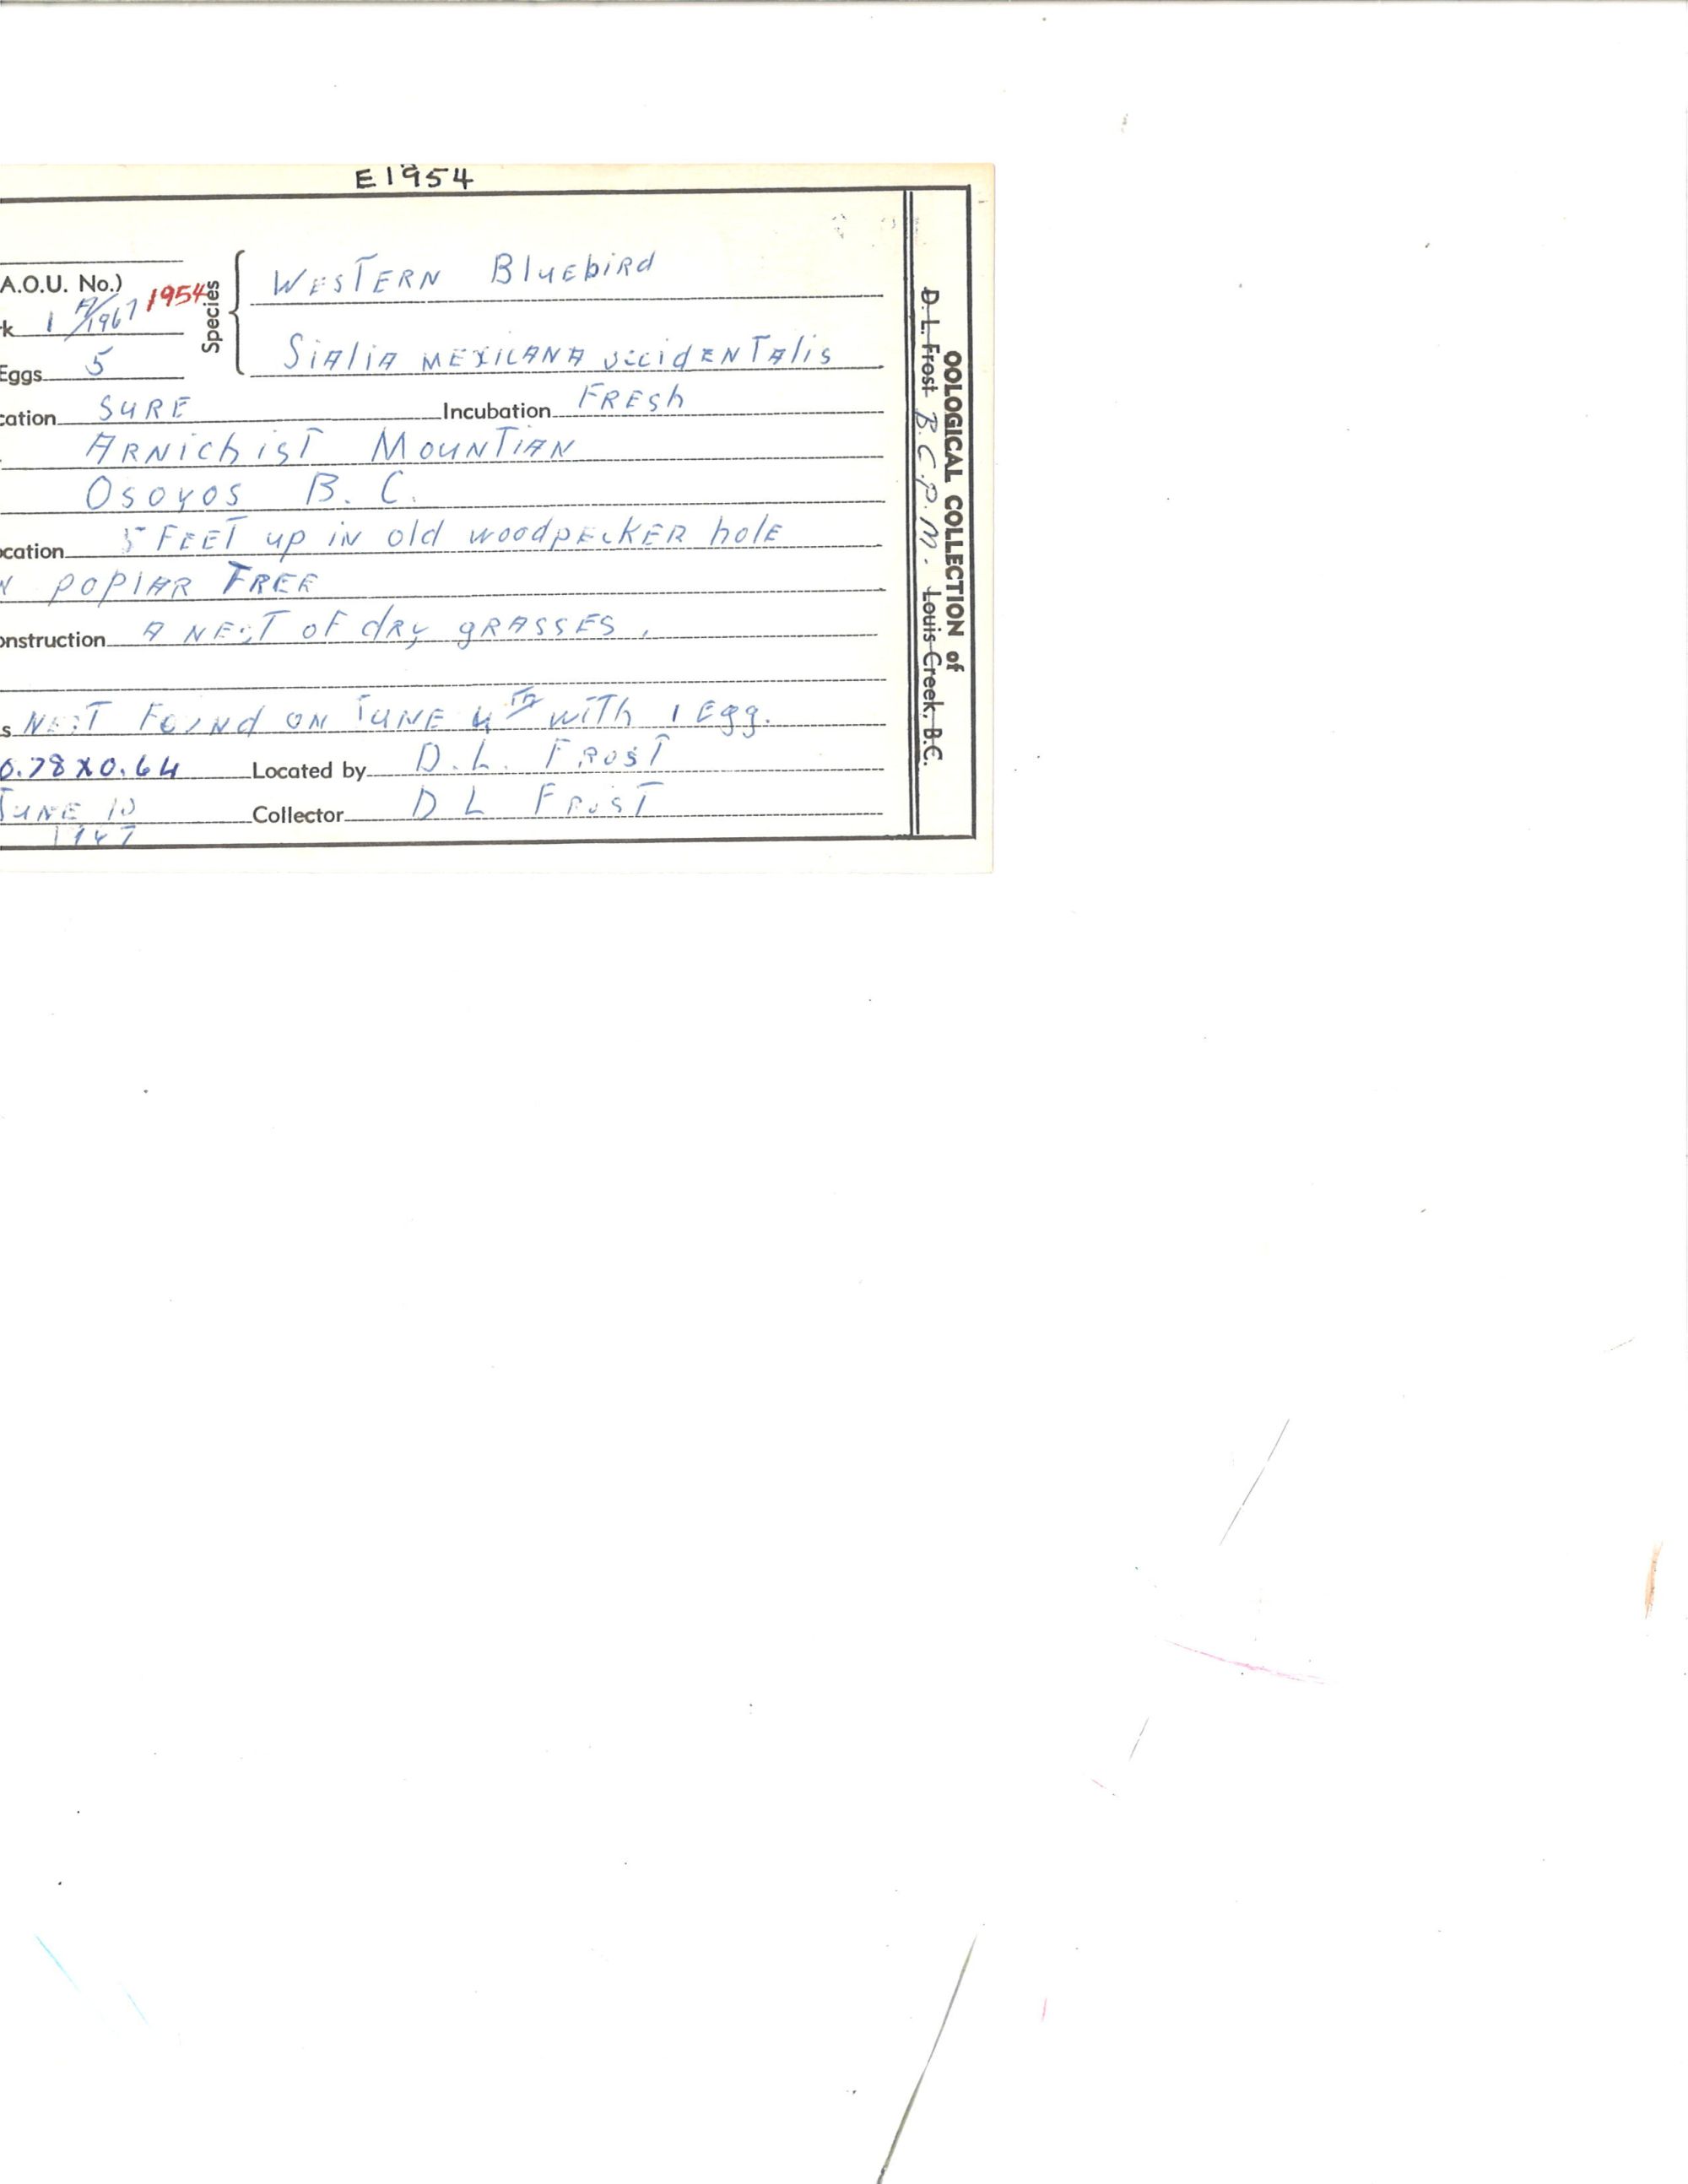 E1954
A.O.U. No.) 1954
k 1 A/1967
Species
WESTERN Bluebird
Eggs 5
Sialia MEXICANA occidENTAlis
cation SURE Incubation FRESh
ARNichist MOUNTIAN
OSOYOS B. C.
ocation 5 FEET up iN old woodpEckER holE
N poplAR TREE
onstruction A NEST OF dRy gRASSES.
s NEST FouNd ON JUNE 4TH WiTh 1 Egg.
0.78 X 0.64 Located by D. L. FROST
JUNE 10 Collector D L FROST
OOLOGICAL COLLECTION of
D. L. Frost B.C.P.M. Louis Creek, B.C.